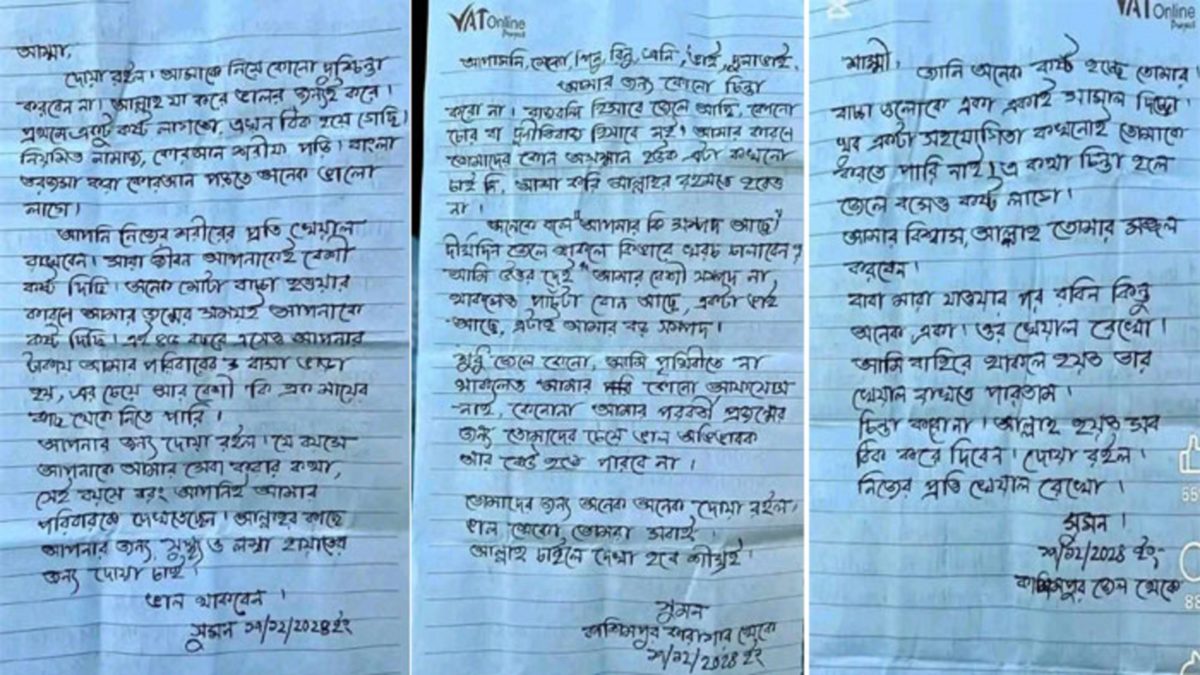 আম্মা,
দোয়া রইল। আমাকে নিয়ে কোনো দুশ্চিন্তা
করবেন না। আল্লাহ যা করে ভালর জন্যই করে।
প্রথমে একটু কষ্ট লাগতো, এখন ঠিক হয়ে গেছি।
নিয়মিত নামাজ, কোরআন শরীফ পড়ি। বাংলা
তরজমা করা কোরআন পড়তে অনেক ভালো
লাগে।
আপনি নিজের শরীরের প্রতি খেয়াল
রাখবেন। সারা জীবন আপনাকেই বেশী
কষ্ট দিছি। অনেক মোটা বাচ্চা হওয়ার
কারনে আমার জন্মের সময়ই আপনাকে
কষ্ট দিছি। এই বছরে এসেও আপনার
টাকায় আমার পরিবারের ও বাসা ভাড়া
হয়, এর চেয়ে আর বেশী কি এক মায়ের
কাছ থেকে নিতে পারি।
আপনার জন্য দোয়া রইল। যে বয়সে
আপনাকে আমার সেবা করার কথা,
সেই বয়সে বরং আপনিই আমার
পরিবারকে দেখতেছেন। আল্লাহর কাছে
আপনার জন্য সুস্থ্য ও লম্বা হায়াতের
জন্য দোয়া চাই।
ভাল থাকবেন।
সুমন ২১/১২/2028 ইং
VAT Online
Project
আপাসনি, লেখা, শিলু, বিনু, এনি, ভাই, দুলাভাই,
আমার জন্য কোনো চিন্তা
করো না। রাজবন্দি হিসাবে জেলে আছি, কোনো
চোর বা দুর্নীতিবাজ হিসাবে নই। আমার কারনে
তোমাদের কোন অসম্মান হউক এটা কখনো
চাই নি, আশা করি আল্লাহর রহমতে হবেও
না।
অনেকে বলে "আপনার কি সম্পদ আছে"
দীর্ঘদিন জেলে থাকলে কিভাবে খরচ চালাবেন?
আমি উত্তর দেই "আমার বেশী সম্পদ না
থাকলেও পাচটা বোন আছে, একটা ভাই
আছে, এটাই আমার বড় সম্পদ।
শুধু জেলে কেনো, আমি পৃথিবীতে না
থাকলেও আমার কোনো আফসোস
নাই, কেনোনা আমার পরবর্তী প্রজন্মের
জন্য তোমাদের চেয়ে ভাল অভিভাবক
আর কেউ হতে পারবে না।
তোমাদের জন্য অনেক অনেক দোয়া রইল,
ভাল থেকো তোমরা সবাই।
আল্লাহ চাইলে দেখা হবে শীঘ্রই।
সুমন
কাশিমপুর কারাগার থেকে
২১/১২/2028 ইং
VAT Online
Project
শাম্মী,
জানি অনেক কষ্ট হচ্ছে তোমার।
বাচ্চা গুলোকে একা একাই সামাল দিচ্ছো।
খুব একটা সহযোগিতা কখনোই তোমাকে
করতে পারি নাই। এ কথা চিন্তা হলে
জেলে বসেও কষ্ট লাগে।
আমার বিশ্বাস, আল্লাহ তোমার মঙ্গল
করবেন।
বাবা মারা যাওয়ার পর রবিন কিন্তু
অনেক একা। ওর খেয়াল রেখো।
আমি বাহিরে থাকলে হয়ত তার
খেয়াল রাখতে পারতাম।
চিন্তা করো না। আল্লাহ হয়ত সব
ঠিক করে দিবেন। দোয়া রইল।
নিজের প্রতি খেয়াল রেখো।
সুমন।
২১/১২/2028 ইং
কাশিমপুর জেল থেকে